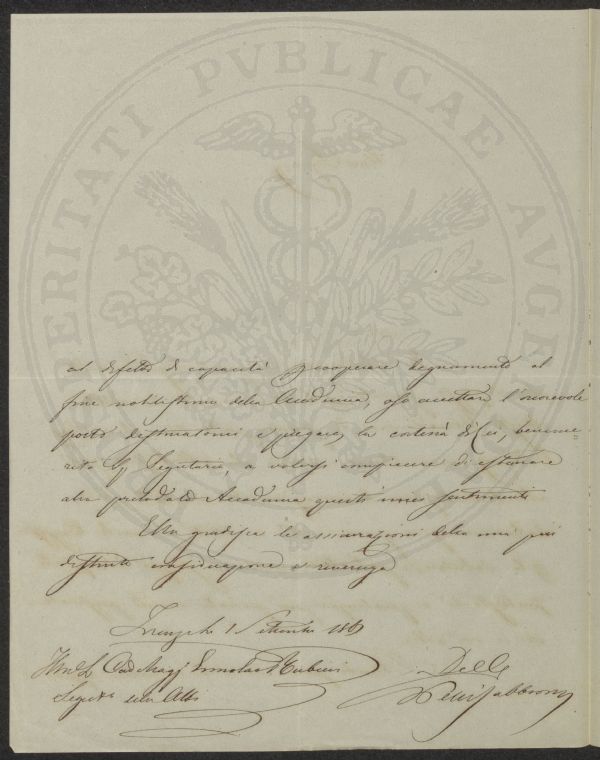 PROSPERITATI PVBLICAE AVGENDAE
al difetto di capacità cooperare degnamente al
fine nobilissimo della Accademia, oso accettare l'onorevole
posto destinatomi e pregare la cortesia di Lei, beneme-
rito Segretario, a volersi compiacere di esternare
alla prelodata Accademia questi miei sentimenti
Ella gradisca le assicurazioni della mia più
distinta considerazione e riverenza
Firenze li 1 Settembre 186
Segret° degli Atti
Delle